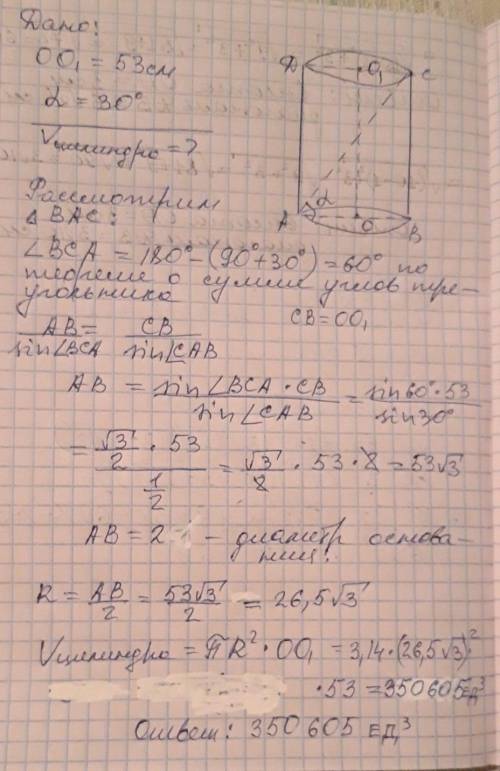 Дано:
OO₁ = 53см
α = 30°
Vцилиндра = ?
D O₁ C
α
A O B
Рассмотрим
△ BAC:
∠BCA = 180° - (90° + 30°) = 60° по
теореме о сумме углов тре-
угольника
CB = OO₁
AB/sin∠BCA = CB/sin∠CAB
AB = sin∠BCA · CB/sin∠CAB = sin60° · 53/sin30°
= (√3/2 · 53)/(1/2) = √3/2 · 53 · 2 = 53√3
AB = 2 - диаметр основа-
ния.
R = AB/2 = 53√3/2 = 26,5√3
Vцилиндра = πR² · OO₁ = 3,14 · (26,5√3)²
· 53 = 350605 ед³
Ответ: 350 605 ЕД³